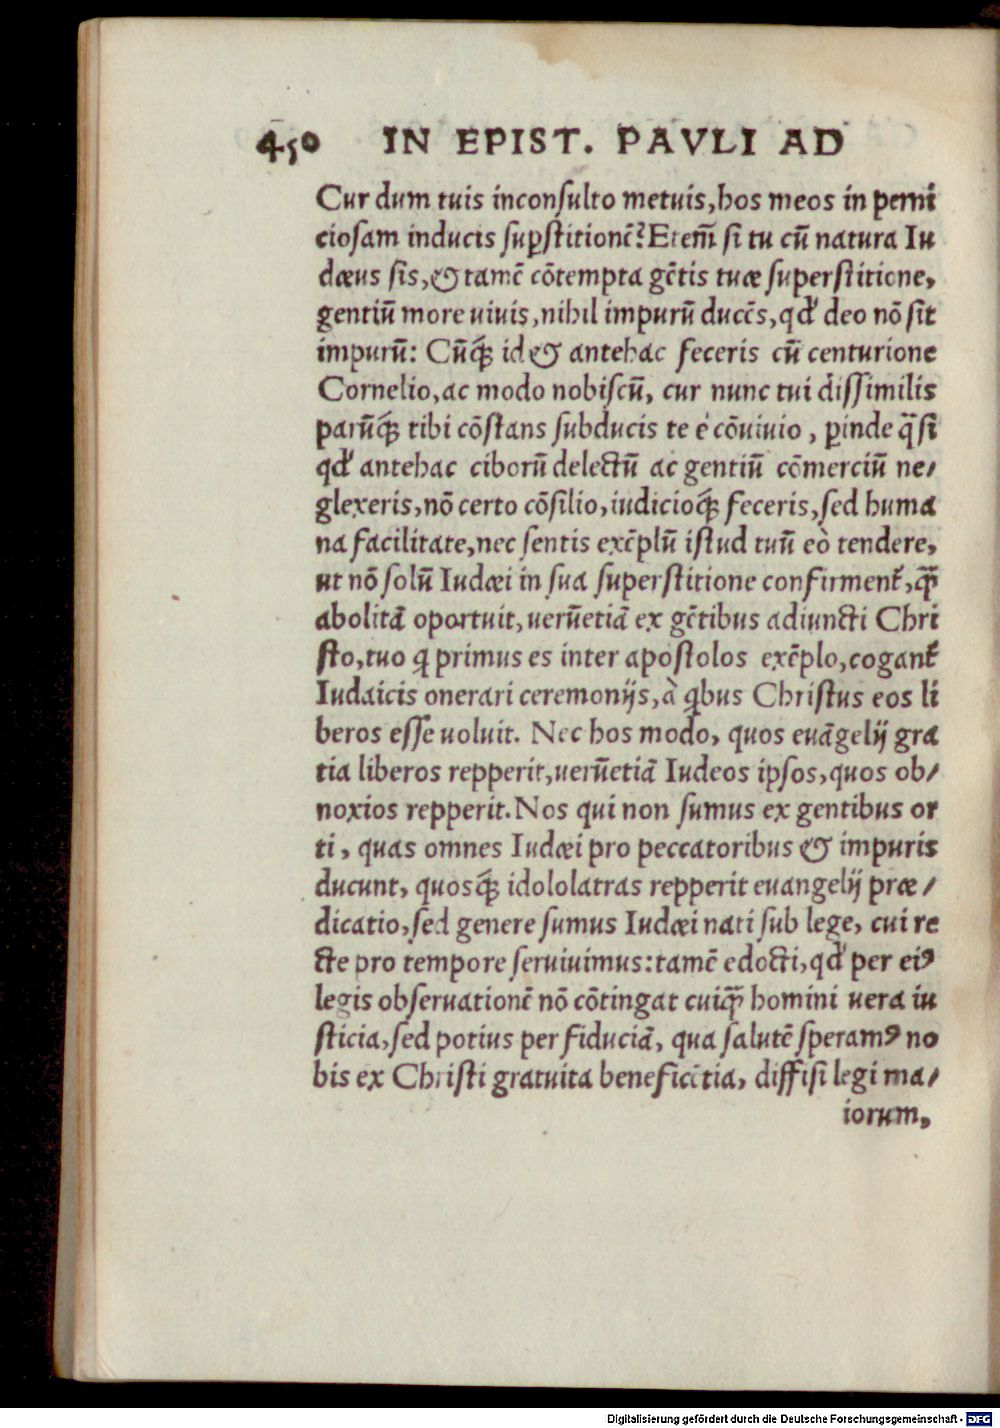 450 IN EPIST. PAVLI AD
Cur dum tuis inconſulto metuis, hos meos in perni
cioſam inducis ſuꝑſtitionẽ? Etem̃ ſi tu cũ natura Iu
dæus ſis, & tamẽ cõtempta gẽtis tuæ ſuperſtitione,
gentiũ more uiuis, nihil impurũ ducẽs, qđ deo nõ ſit
impurũ: Cũq́ꝫ id & antehac feceris cũ centurione
Cornelio, ac modo nobiſcũ, cur nunc tui diſſimilis
parũq́ꝫ tibi cõſtans ſubducis te è cõuiuio, ꝑinde q̃ſi
qđ antehac ciborũ delectũ ac gentiũ cõmerciũ ne/
glexeris, nõ certo cõſilio, iudicioq́ꝫ feceris, ſed huma
na facilitate, nec ſentis exẽplũ iſtud tuũ eò tendere,
ut nõ ſolũ Iudæi in ſua ſuperſtitione confirment᷑, q̃ꝫ
abolitã oportuit, uerũetiã ex gẽtibus adiuncti Chri
ſto, tuo ꝗ primus es inter apoſtolos exẽplo, cogant᷑
Iudaicis onerari ceremonijs, à ꝗbus Chriſtus eos li
beros eſſe uoluit. Nec hos modo, quos euãgelij gra
tia liberos repperit, uerũetiã Iudeos ipſos, quos ob/
noxios repperit. Nos qui non ſumus ex gentibus or
ti, quas omnes Iudæi pro peccatoribus & impuris
ducunt, quosq́ꝫ idololatras repperit euangelij præ/
dicatio, ſed genere ſumus Iudæi nati ſub lege, cui re
cte pro tempore ſeruiuimus: tamẽ edocti, qđ per eiꝰ
legis obſeruationẽ nõ cõtingat cuiq̃ꝫ homini uera iu
ſticia, ſed potius per fiduciã, qua ſalutẽ ſperamꝰ no
bis ex Chriſti gratuita beneficẽtia, diffiſi legi ma/
iorum,
Digitalisierung gefördert durch die Deutsche Forschungsgemeinschaft - DFG